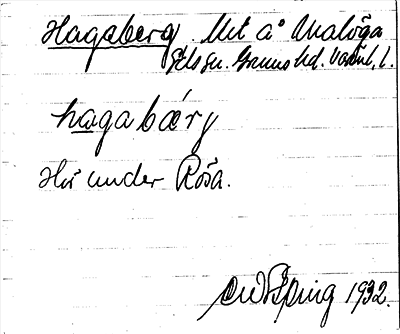 Hagaberg. Utt å Analöga
Eds sn. Grums hd. Värml. l.
hagabærj
Hör under Rösa.
1932.